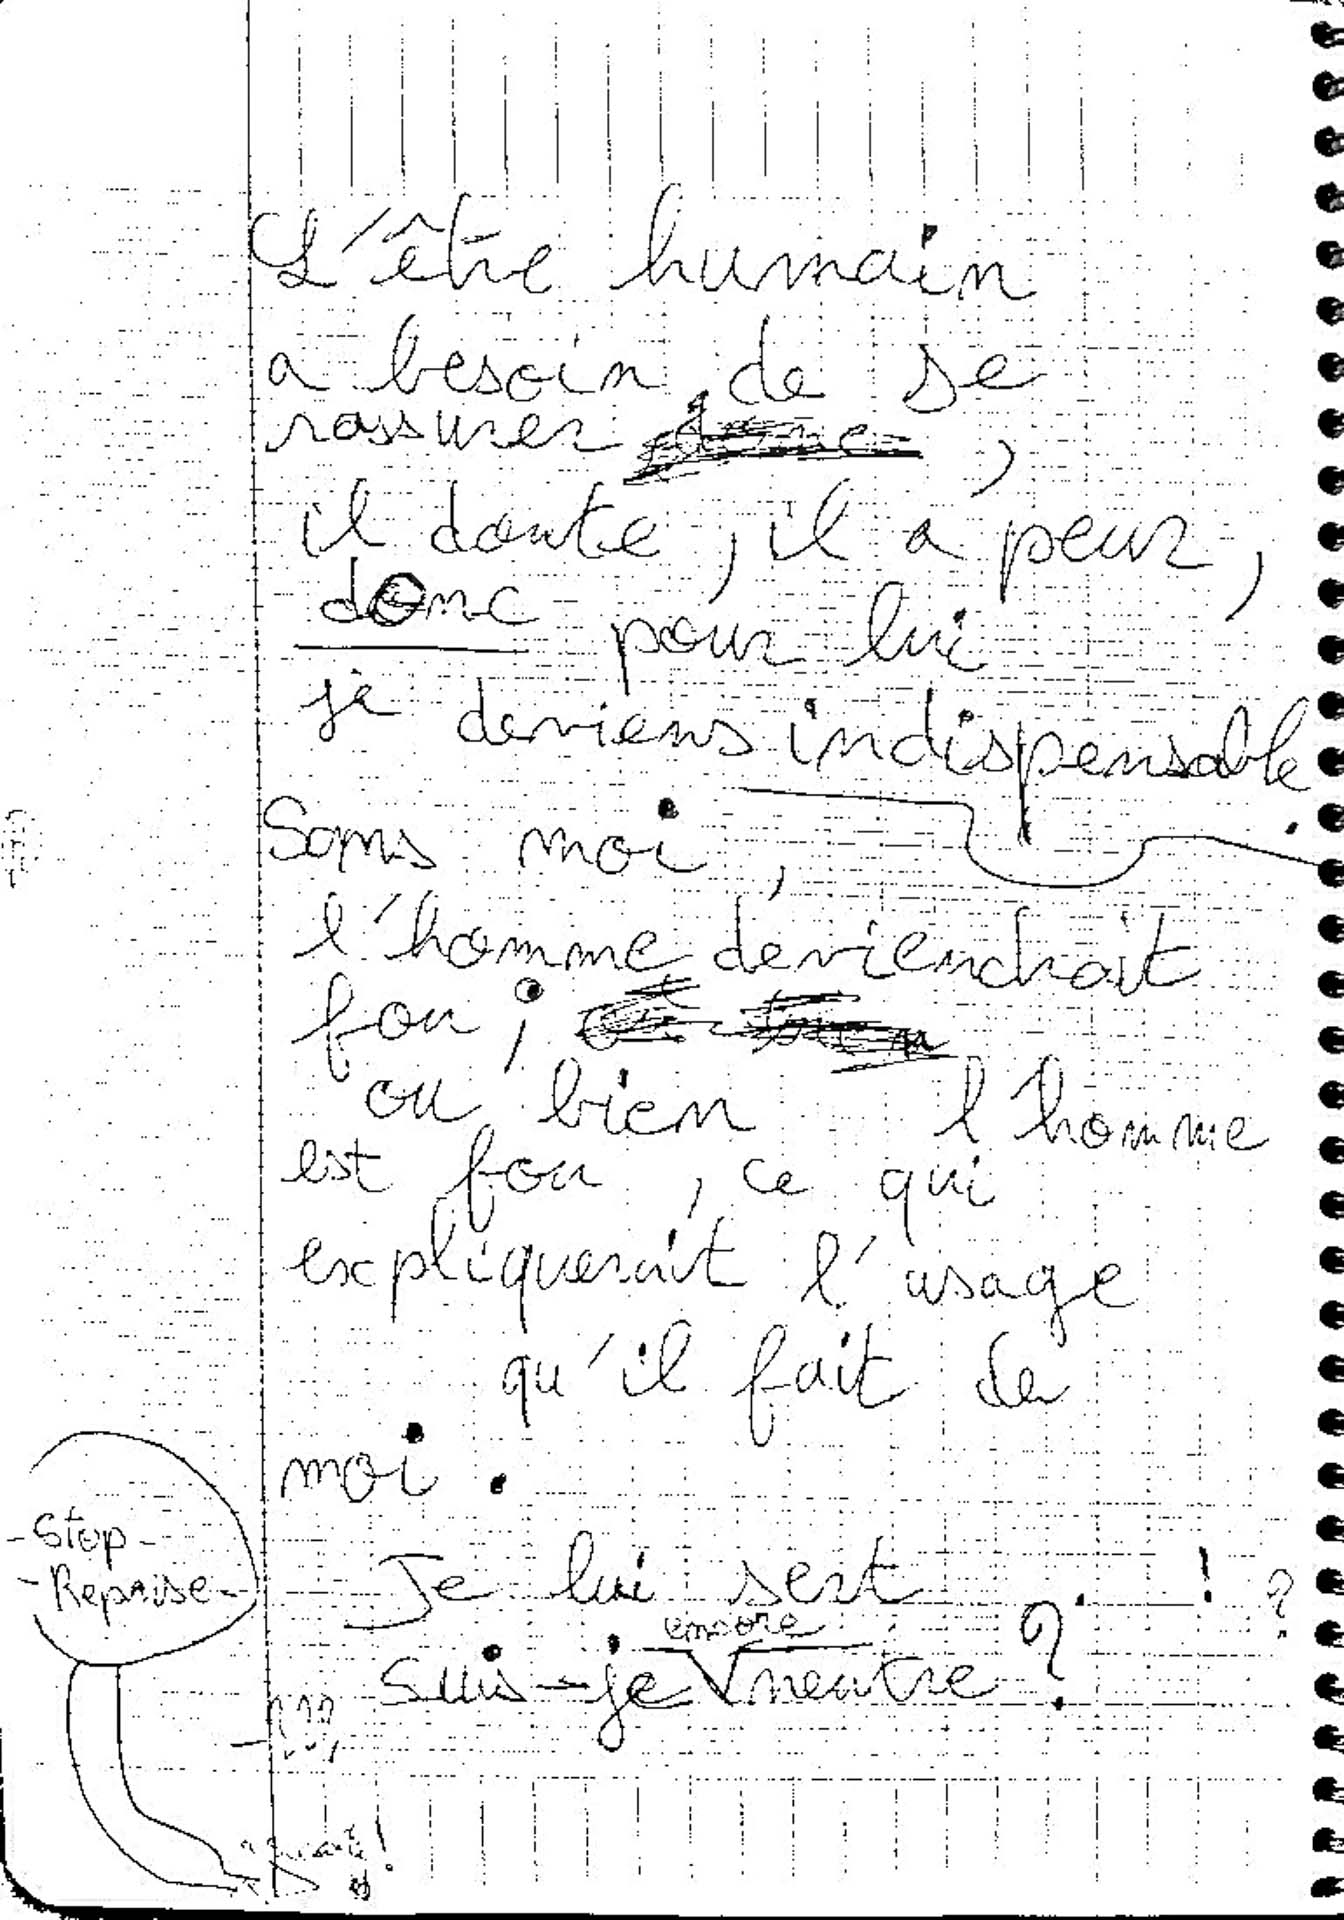 L'être humain
a besoin de se
rassurer donc,
il doute, il a peur,
donc pour lui
je deviens indispensable.
Sans moi,
l'homme deviendrait
fou;
ou bien l'homme
est fou, ce qui
expliquerait l'usage
qu'il fait de
moi.
- Stop -
- Reprise -
Je lui sert ! ?
encore
Suis-je neutre ?